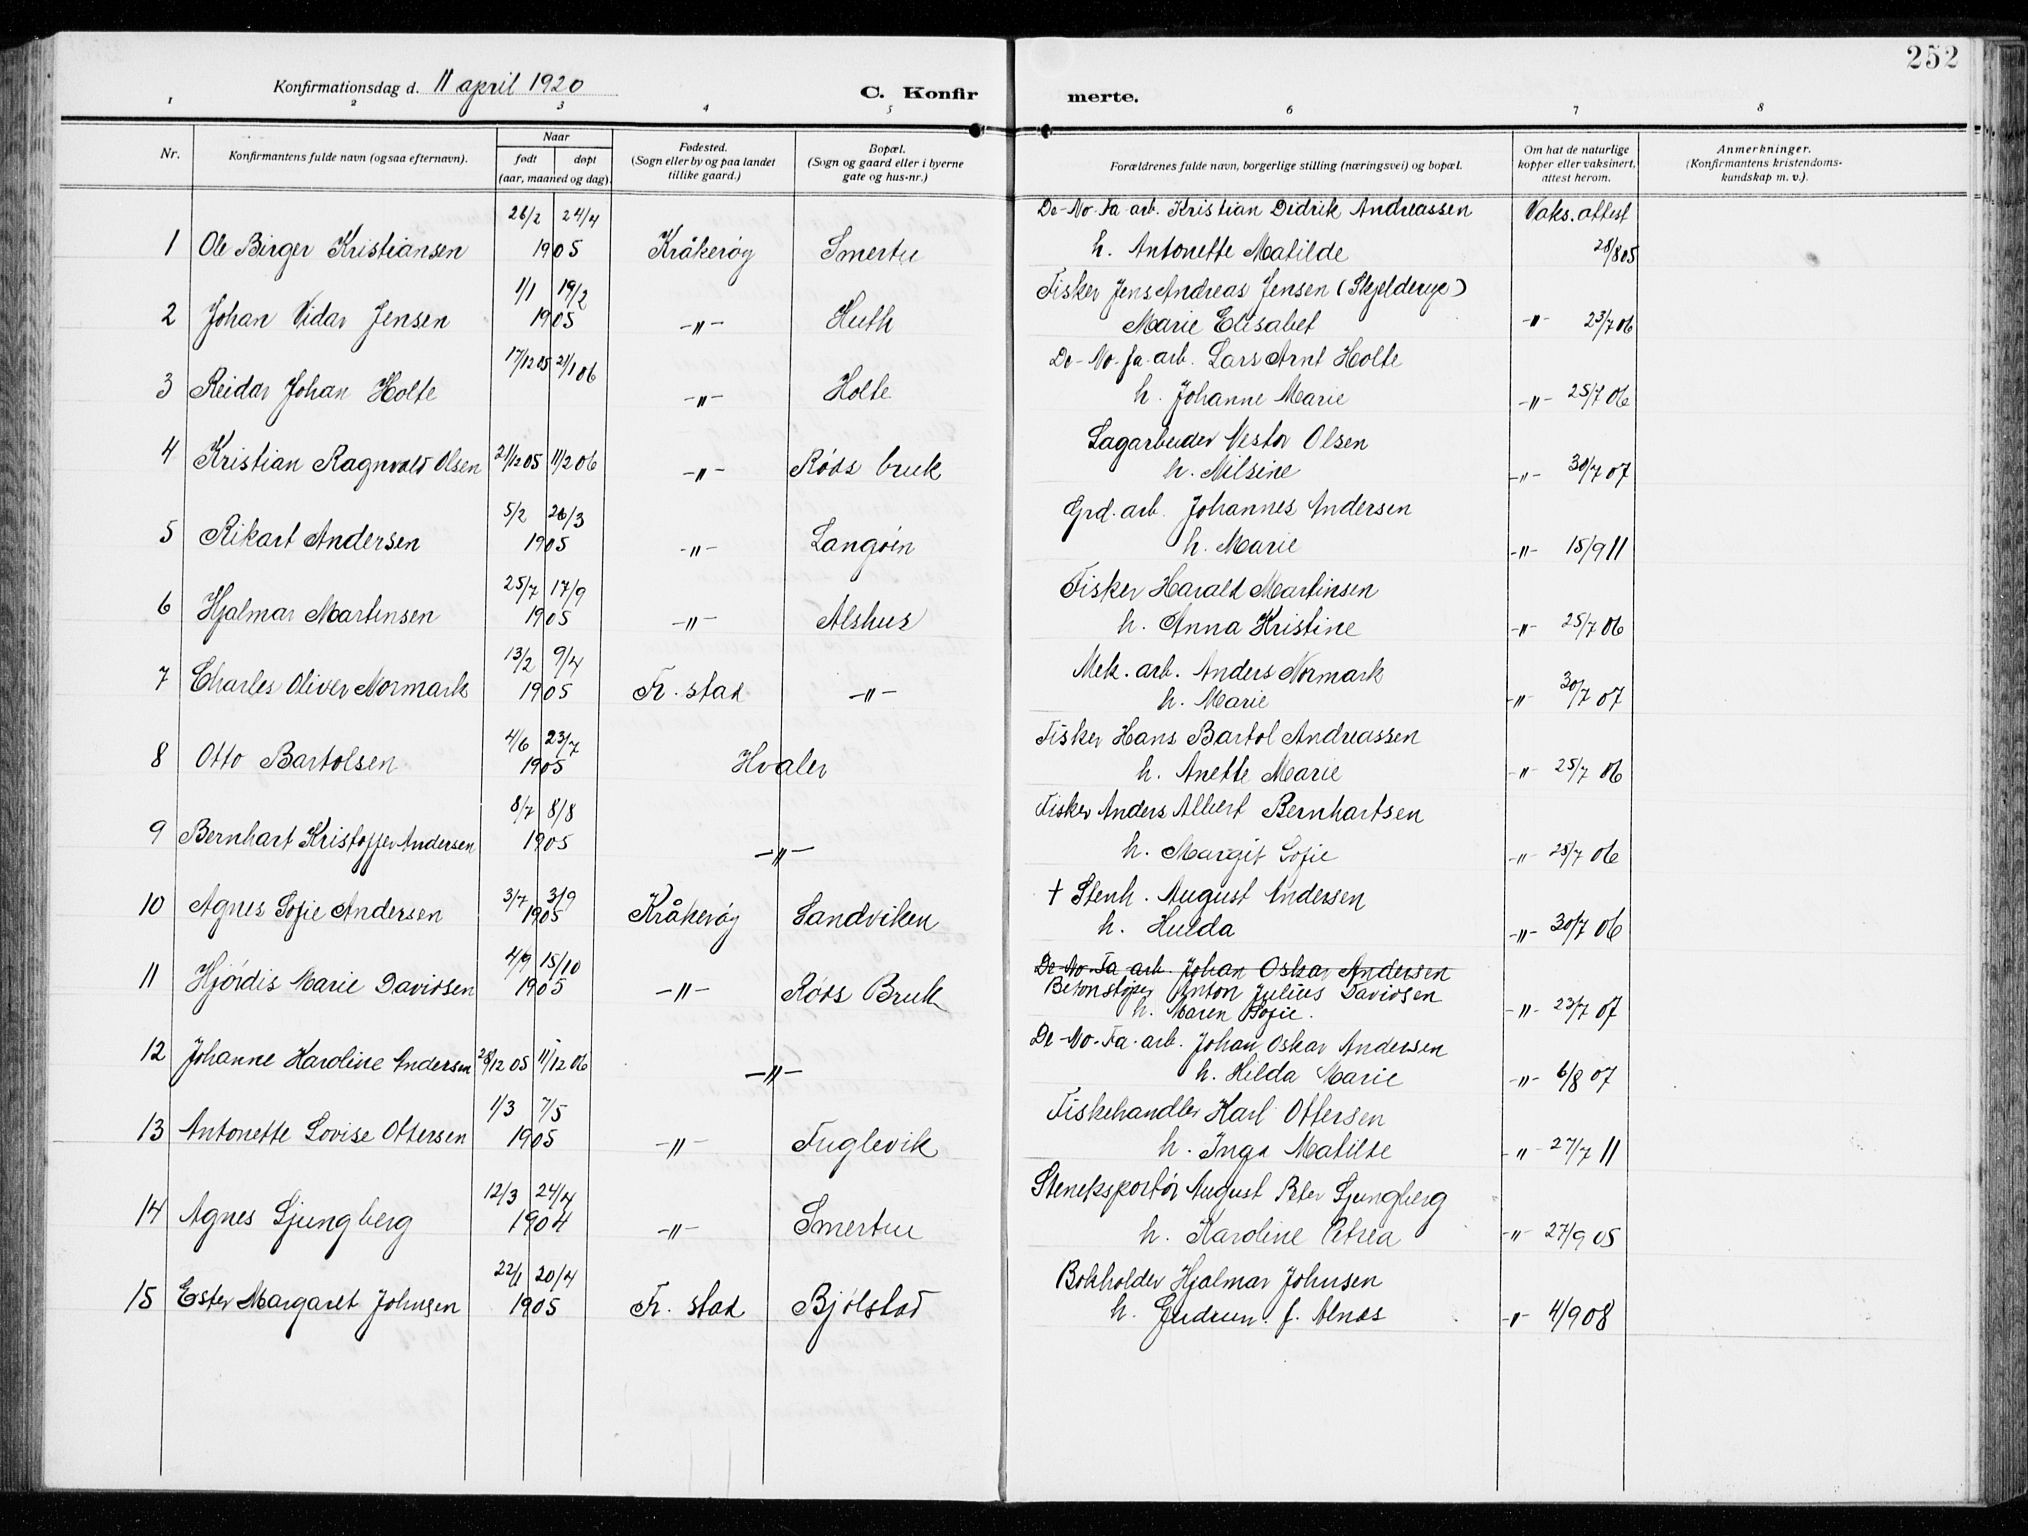 252
Konfirmationsdag d. 11 april 1920
C. Konfirmerte.
1 2 3 4 5 6 7 8
Nr.
Konfirmantens fulde navn (ogsaa efternavn).
Naar
født døpt
(aar, maaned og dag).
Fødested.
(Sogn eller by og paa landet
tillike gaard.)
Bopæl.
(Sogn og gaard eller i byerne
gate og hus-nr.)
Forældrenes fulde navn, borgerlige stilling (næringsvei) og bopæl.
Om hat de naturlige
kopper eller vaksinert,
attest herom.
Anmerkninger.
(Konfirmantens kristendoms-
kundskap m. v.).
26/2 24/4 De-No-Fa arb. Kristian Didrik Andreassen Vaks. attest
1 Ole Birger Kristiansen 1905 Kråkerøy Smertu h. Antonette Matilde 28/8 05
1/1 19/2 Fisker Jens Andreas Jensen (Skjelderye)
2 Johan Vidar Jensen 1905 -"- Huth Marie Elisabet -"- 23/7 06
17/12 05 21/1 06 De-No-fa arb. Lars Arnt Holte
3 Reidar Johan Holte -"- Holte h. Johanne Marie -"- 25/7 06
Sagarbeider Nestor Olsen
4 Kristian Ragnvald Olsen 21/12 05 11/2 06 -"- Røds bruk h. Milsine -"- 30/7 07
5/2 26/3 Grd. arb. Johannes Andersen
5 Rikart Andersen 1905 -"- Langøen h. Marie -"- 15/9 11
25/7 17/9 Fisker Harald Martinsen
6 Hjalmar Martinsen 1905 -"- Alshus h. Anna Kristine -"- 25/7 06
13/2 9/4 Mek. arb. Anders Normark
7 Charles Oliver Normark 1905 Fr. stad -"- h. Marie -"- 30/7 07
4/6 23/7 Fisker Hans Bartol Andreassen
8 Otto Bartolsen 1905 Hvaler h. Anette Marie -"- 25/7 06
8/7 8/8 Fisker Anders Albert Bernhartsen
9 Bernhart Kristoffer Andersen 1905 -"- h. Margit Sofie -"- 25/7 06
3/7 3/9 + Stenh. August Andersen
10 Agnes Sofie Andersen 1905 Kråkerøy Sandviken h. Hulda -"- 30/7 06
4/9 15/10 De-No-Fa arb. Johan Oskar Andersen
11 Hjørdis Marie Davidsen 1905 -"- Røds Bruk Betonstøper Anton Julius Davidsen
h. Maren Sofie. -"- 23/7 07
De-No-Fa-arb. Johan Oskar Andersen
12 Johanne Karoline Andersen 28/12 05 11/12 06 -"- h. Hilda Marie -"- 6/8 07
1/3 7/5 Fiskehandler Karl Ottersen
13 Antonette Lovise Ottersen 1905 -"- Fuglevik h. Inga Matilde -"- 27/7 11
12/3 24/4 Steneksportør August Peter Ljungberg
14 Agnes Ljungberg 1904 -"- Smertu h. Karoline Petrea -"- 27/9 05
22/1 20/4 Bokholder Hjalmar Johnsen
15 Ester Margaret Johnsen 1905 Fr. stad Bjølstad h. Gudrun f. Alnæs -"- 4/9 08